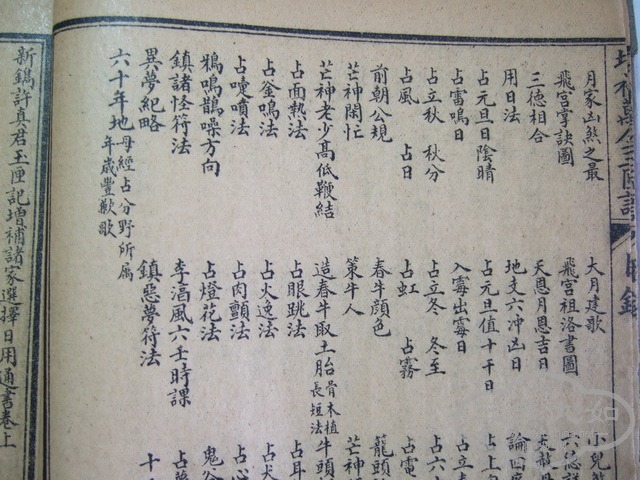 月家凶煞之最 大月建歌 小兒
飛宮掌訣圖 飛宮祖洛書圖 六德
三德相合 天恩月恩吉日
用日法 地支六冲凶日 論四
占元旦日陰晴 占元旦值十干日 占上
占雷鳴日 入霉出霉日 占立
占立秋 秋分 占立冬 冬至 占六
占風 占日 占虹 占霧 占電
前朝公規 春牛顏色 龍頭
芒神閑忙 策牛人 芒神
芒神老少高低鞭結 造春牛取土胎骨木植長短法 牛頭
占面熱法 占眼跳法 占耳
占釜鳴法 占火逸法 占犬
占嚏噴法 占肉顫法 占心
鴉鳴鵲噪方向 占燈花法 鬼谷
鎮諸怪符法 李淳風六壬時課 占夢
異夢紀略 鎮惡夢符法 十
六十年地母經占分野所属年歲豐歉歌
新鐫許真君玉匣記增補諸家選擇日用通書卷上